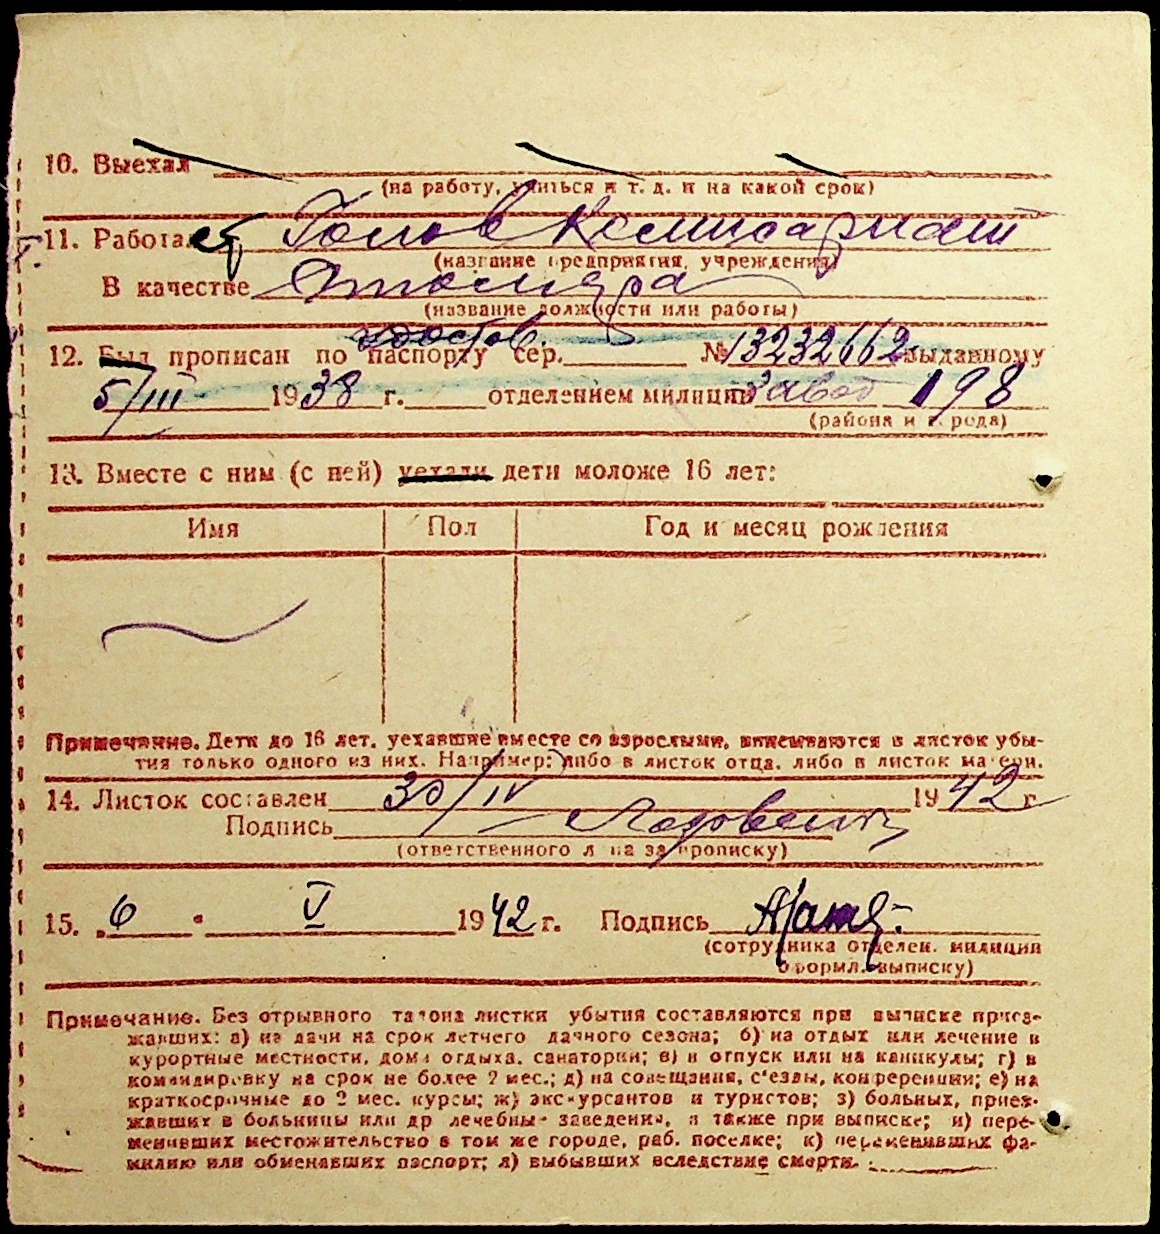 10. Выехал
(на работу, учиться и т. д. и на какой срок)
11. Работает
(название предприятия, учреждения)
В качестве
(название должности или работы)
удостов.
12. Был прописан по паспорту сер. № 13232662 выданному
5/III 1938 г. отделением милиции завод 198
(района и города)
13. Вместе с ним (с ней) уехали дети моложе 16 лет:
Имя Пол Год и месяц рождения
Примечание. Дети до 16 лет, уехавшие вместе со взрослыми, вписываются в листок убы-
тия только одного из них. Например: либо в листок отца, либо в листок матери.
14. Листок составлен 30/IV 1942 г.
Подпись
(ответственного лица за прописку)
15. „6 " V 1942 г. Подпись
(сотрудника отделен. милиции
оформл. выписку)
Примечание. Без отрывного талона листки убытия составляются при выписке приез-
жавших: а) на дачи на срок летнего дачного сезона; б) на отдых или лечение в
курортные местности, дома отдыха, санатории; в) в отпуск или на каникулы; г) в
командировку на срок не более 2 мес.; д) на совещания, с'езды, конференции; е) на
краткосрочные до 2 мес. курсы; ж) экскурсантов и туристов; з) больных, приез-
жавших в больницы или др лечебные заведения, а также при выписке; и) пере-
менивших местожительство в том же городе, раб. поселке; к) переменивших фа-
милию или обменавших паспорт; л) выбывших вследствие смерти.